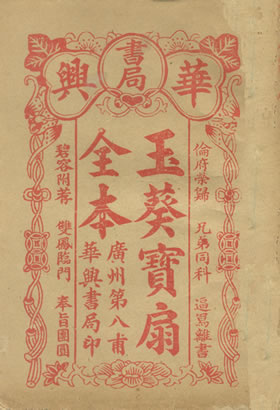 華
書局
興
倫府榮歸　兄弟同科　逼寫離書
玉葵寶扇
全本
廣州第八甫
華興書局印
碧容附荐　雙鳳臨門　奉旨團圓